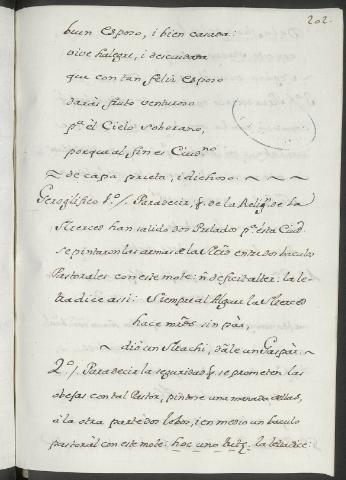 202.
buen esposo, i bien casada:
vive halegre, i descuidada
que con tan felix esposo
daràs fruto venturoso
pª el Cielo soberano,
porque al fin es Ciud.no
~ de capa prieta, i dichoso. ~ ~ ~ ~
Geroglifico 1.º/. Para decir, q. de la Relig.n de la
Merced han salido dos Prelados pª ésta Ciud.
se pintaron las armas de la Relig.n entre dos baculos
Pastorales con este mote: non deficit alter. la le-
tra dice assi: Siempre al Algue la Merced
hace mrds sin pàr,
~ dió un Mrachi, dále un Gaspàr. ~
2.º/. Para decir la seguridad q. se prometen las
obejas con tal Pastor, pintose una manada de ellas,
à la otra parte dos lobos, i en medio un baculo
pastoràl con este mote: hoc uno la letra dice: